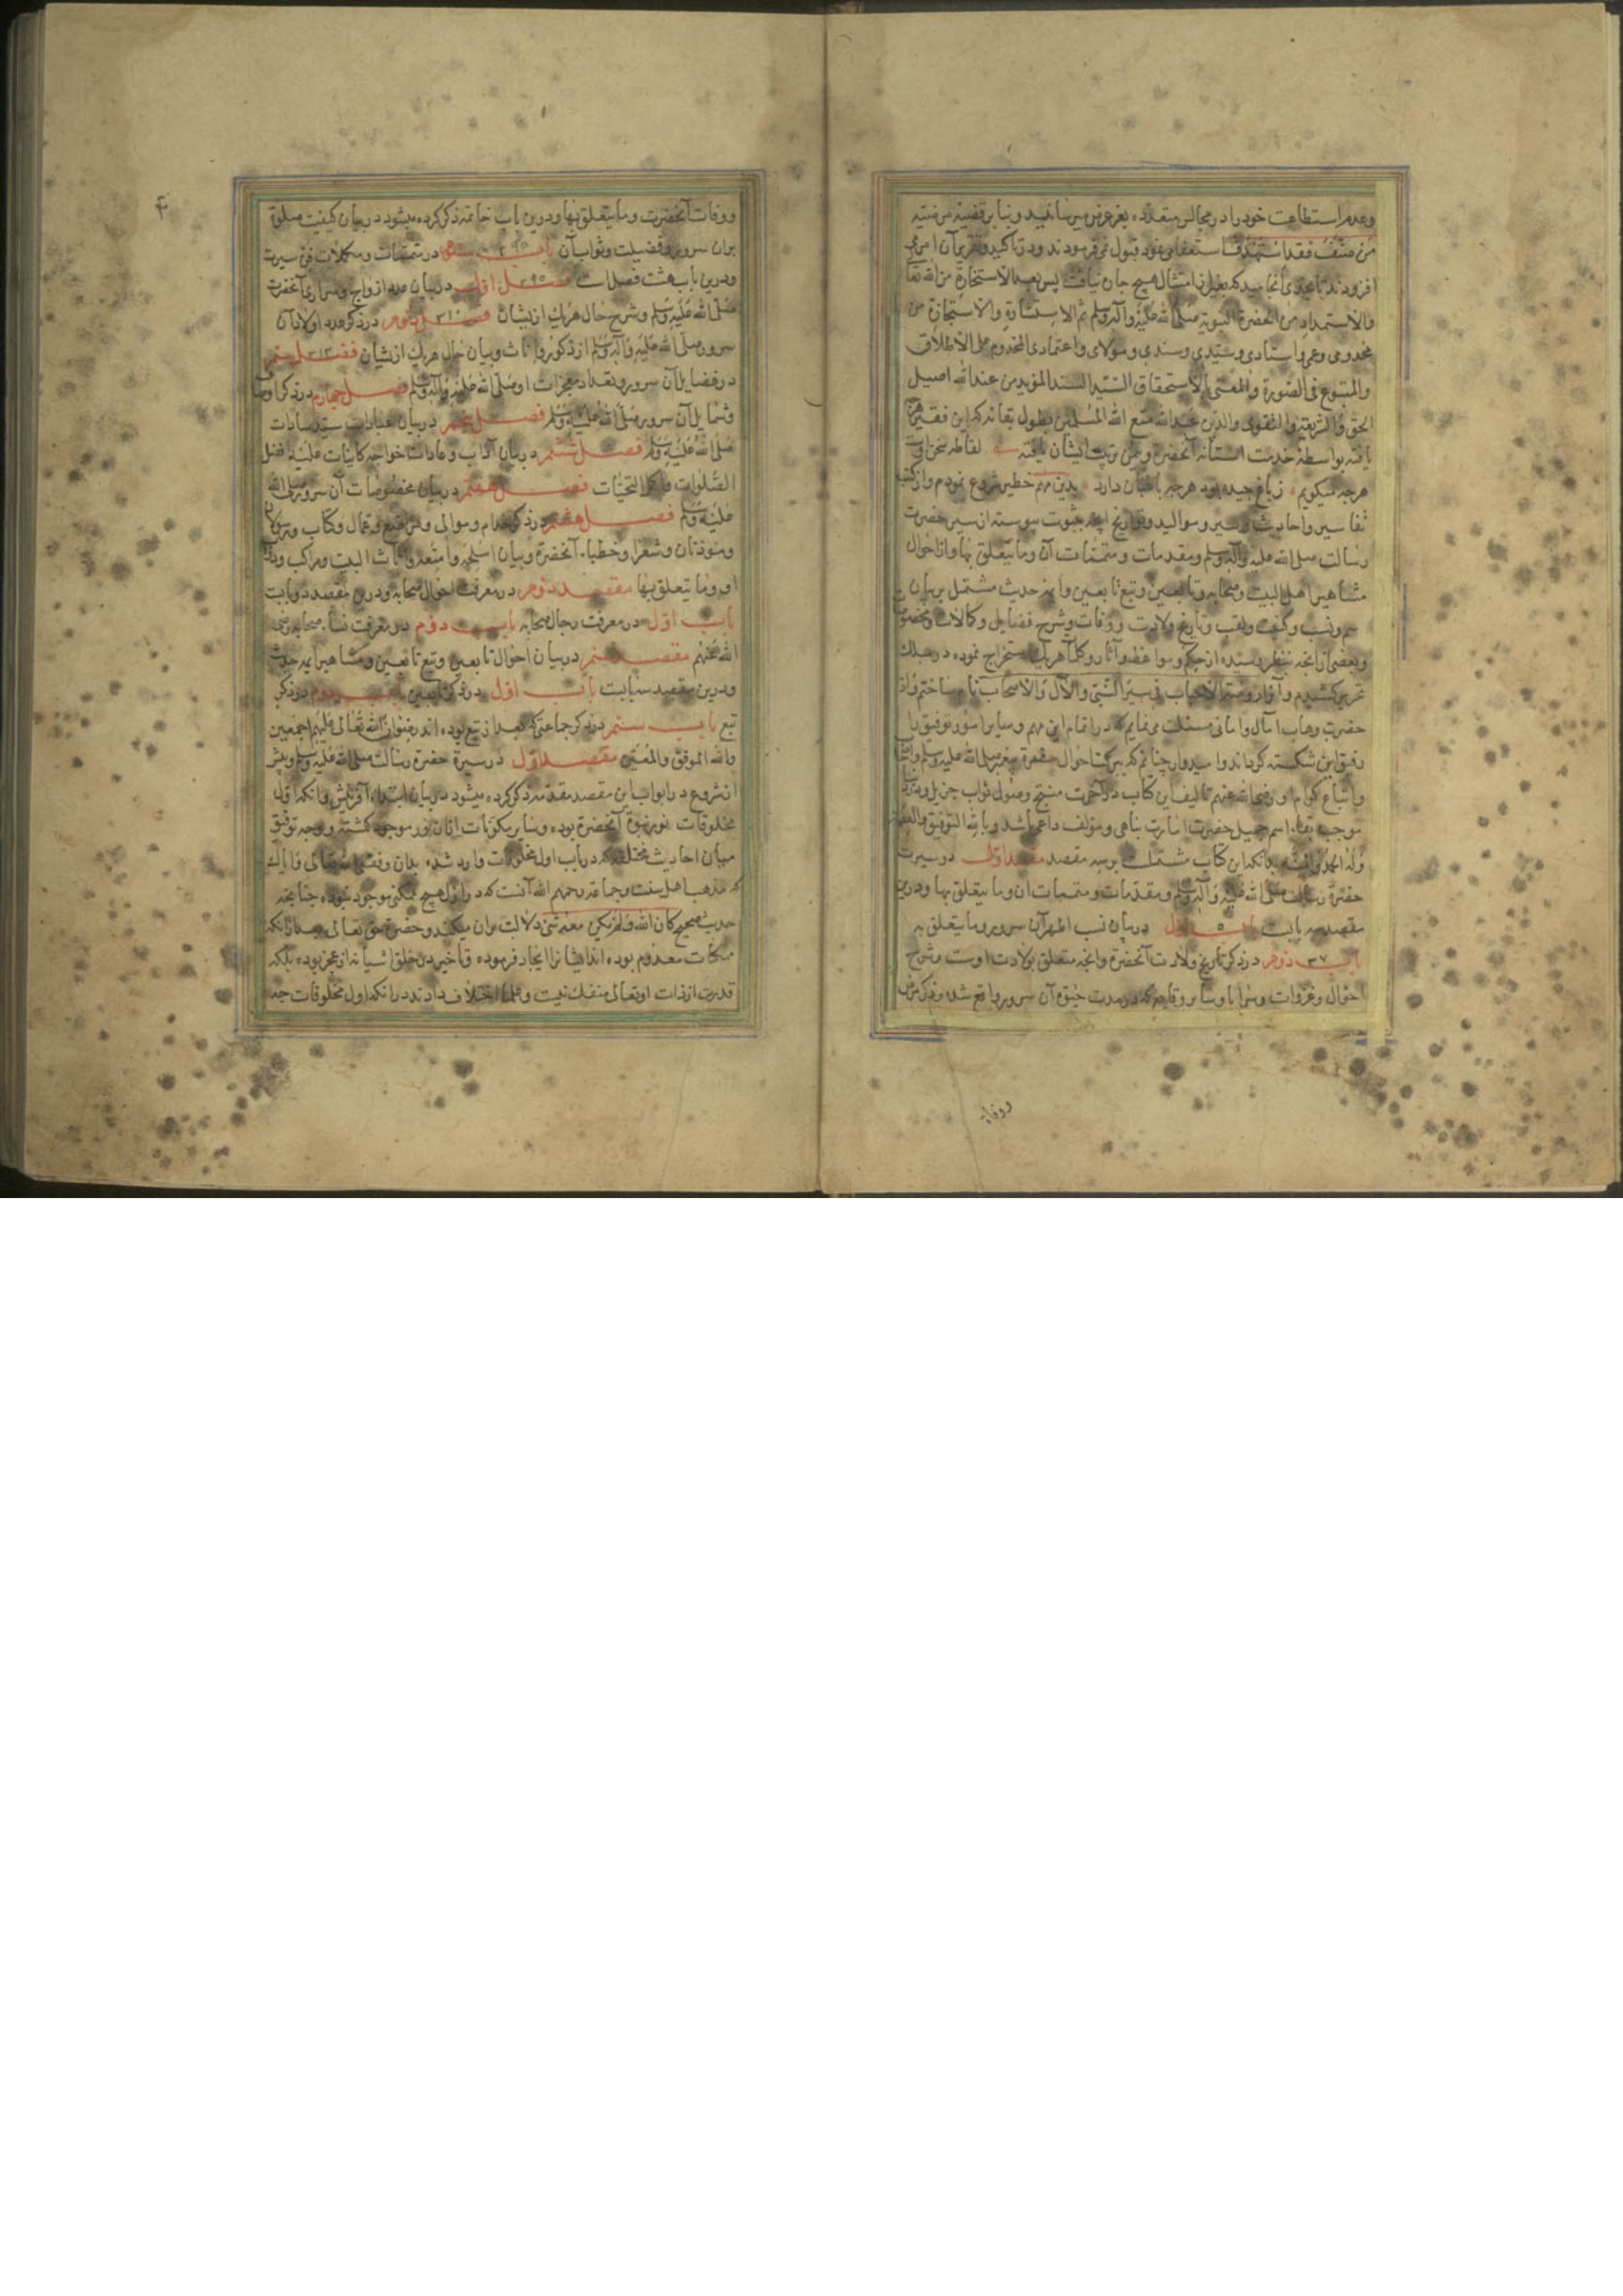 وعدم استطاعت خود را در مجالس متعدده بعرض میرسانید و بنا بر قضیهٔ مرضیه
من صنف فقد استهدف استعفا می نمود قبول نمی فرمودند و در تاکید و تقریر آن امر می
افزودند تا بحدی انجامید که بغیر از امتثال هیچ چاره نیافت پس بعد الاستخارة من الله تعا
والاستمداد من الحضرة النبویة صلی الله علیه وآله وسلم ثم الاستشارة والاستجازة من
مخدومی وعمی واستادی وسیدی وسندی ومولای واعتمادی المخدوم علی الاطلاق
والمتبوع فی الصورة والمعنی بالاستحقاق السید السند المؤید من عند الله اصیل
الحق والشریعة والتقوی والدین عبد الله متع الله المسلمین بطول بقائه که این فقیر هرچه
یافته بواسطهٔ خدمت آستانه آنحضرت و یمن تربیت ایشان یافته لفاظه سخن اوست
هرچه میکویم ز باغ چیده بود هرچه باغبان دارد بدین مهم خطیر شروع نمودم واز کتب
تفاسیر واحادیث وسیر وموالید وتواریخ آنچه بثبوت پیوسته از سیر حضرت
رسالت صلی الله علیه وآله وسلم ومقدمات ومتممات آن وما یتعلق بها واز احوال
مشاهیر اهل البیت وصحابه وتابعین وتبع تابعین وائمه حدیث مشتمل بر بیان
اسم ونسب وکنیت ولقب وتاریخ ولادت ووفات وشرح فضایل وکمالات ومخصو
وبعضی از آنچه بنظر رسیده از حکم ومواعظ وآثار وکلمات هریک استخراج نموده در سلک
تحریر کشیدم وآنرا روضة الاحباب فی سیر النبی والآل والاصحاب نام ساختم واز
حضرت وهاب آمال وامانی مسئلت می نمایم که در اتمام این مهم وسایر امور توفیق را
رفیق این شکسته گرداند وامیدوار چنانم که ببرکت احوال حضرة پیغمبر صلی الله علیه وسلم
واتباع کرام او رضی الله عنهم تالیف این کتاب در آخرت منتج وصول ثواب جزیل و در دنیا
موجب بقاء اسم جمیل حضرت امارت پناهی ومؤلف داعی باشد وبالله التوفیق
وله الحمد والمنه بدانکه این کتاب مشتملست برسه مقصد مقصد اول در سیرت
حضرة رسالت صلی الله علیه وآله وسلم ومقدمات ومتممات آن وما یتعلق بها ودرین
مقصد سه بابست باب اول ٥ در بیان نسب اطهر آن سرور وما یتعلق به
باب ٣٧ دوم در ذکر تاریخ ولادت آنحضرة وآنچه متعلق بولادت اوست وشرح
احوال وغزوات وسرایا وسایر وقایع که در مدت حیوة آن سرور واقع شده وذکر مرض
ووفات
۴
ووفات آنحضرت وما یتعلق بها ودرین باب خاتمه ذکر کرده میشود در بیان کیفیت صلوة
بران سرور وفضیلت وثواب آن باب ٢٩٥ سوم در متممات ومکملات فن سیرت
ودرین باب هشت فصل است فصل ٢٩٥ اول در بیان عدد ازواج وسراری آنحضرت
صلی الله علیه وسلم وشرح حال هریک از یشان فصل ٣١٠ دوم در ذکر عدد اولاد آن
سرور صلی الله علیه وآله وسلم از ذکور واناث وبیان حال هریک از یشان فصل ٣١٣ سیم
در فضایل آن سرور وتعداد معجزات او صلی الله علیه وآله وسلم فصل چهارم در ذکر اوصاف
وشمایل آن سرور صلی الله علیه وسلم فصل پنجم در بیان عبادات سید سادات
صلی الله علیه وسلم فصل ششم در بیان آداب وعادات خواجه کاینات علیه افضل
الصلوات واکمل التحیات فصل هفتم در بیان مخصوصات آن سرور صلی الله
علیه وسلم فصل هشتم در ذکر خدام وموالی وعمال وکتاب ورسولان
وموذنان وشعرا وخطباء آنحضرة وبیان اسلحه وامتعه واثاث البیت ومراکب ودواب
او وما یتعلق بها مقصد دوم در معرفت احوال صحابه ودرین مقصد دو بابت
باب اول در معرفت رجال صحابه باب دوم در معرفت نساء صحابه رضی
الله عنهم مقصد سیم در بیان احوال تابعین وتبع تابعین ومشاهیر ائمه حدیث
ودرین مقصد سه بابست باب اول در ذکر تابعین باب دوم در ذکر
تبع باب سیم در ذکر جماعتی که بعد از تبع بوده اند رضوان الله تعالی علیهم اجمعین
والله الموفق والمعین مقصد اول در سیرة حضرة رسالت صلی الله علیه وسلم وپیش
از شروع در ابواب این مقصد مقدمه ذکر کرده میشود در بیان ابتداء آفرینش وآنکه اول
مخلوقات نور نبوة آنحضرة بوده وسایر مکونات از آن نور موجود کشته ووجه توفیق
میان احادیث مختلفه که در باب اول مخلوقات وارد شده بدان وفقنی الله تعالی وایاک
که مذهب اهل سنت وجماعة رحمهم الله آنست که در ازل هیچ ممکنی موجود نبوده چنانچه
حدیث صحیح کان الله ولم یکن معه شیء دلالت بران میکند وحضرة حق تعالی بعد از آنکه
ممکنات معدوم بوده اند ایشانرا ایجاد فرموده وتاخیر در خلق اشیا نه از عجز بوده بلکه
قدرت از ذات او تعالی منفک نیست وعلما اختلاف دارند در آنکه اول مخلوقات چه